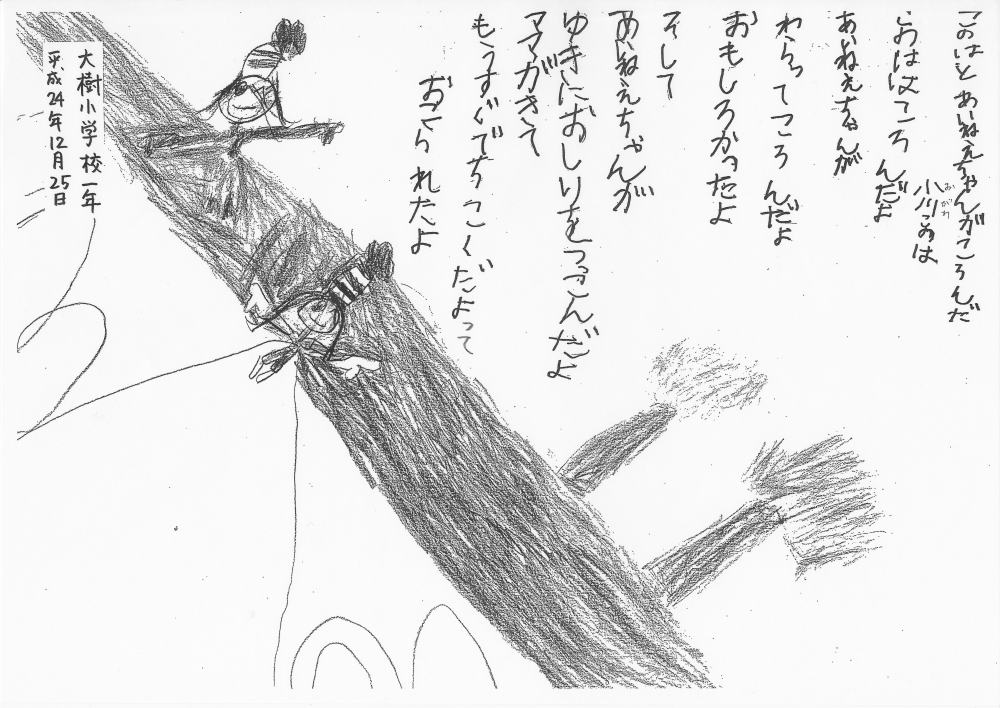 このはとあいねえちゃんがころんだ
おがわ
小川このは
このははころんだよ
あいねえちゃんが
わらってころんだよ
おもしろかったよ
そして
あいねえちゃんが
ゆきにおしりをつっこんだよ
ママがきて
もうすぐでちこくだよって
おこられたよ
大樹小学校一年
平成24年12月25日